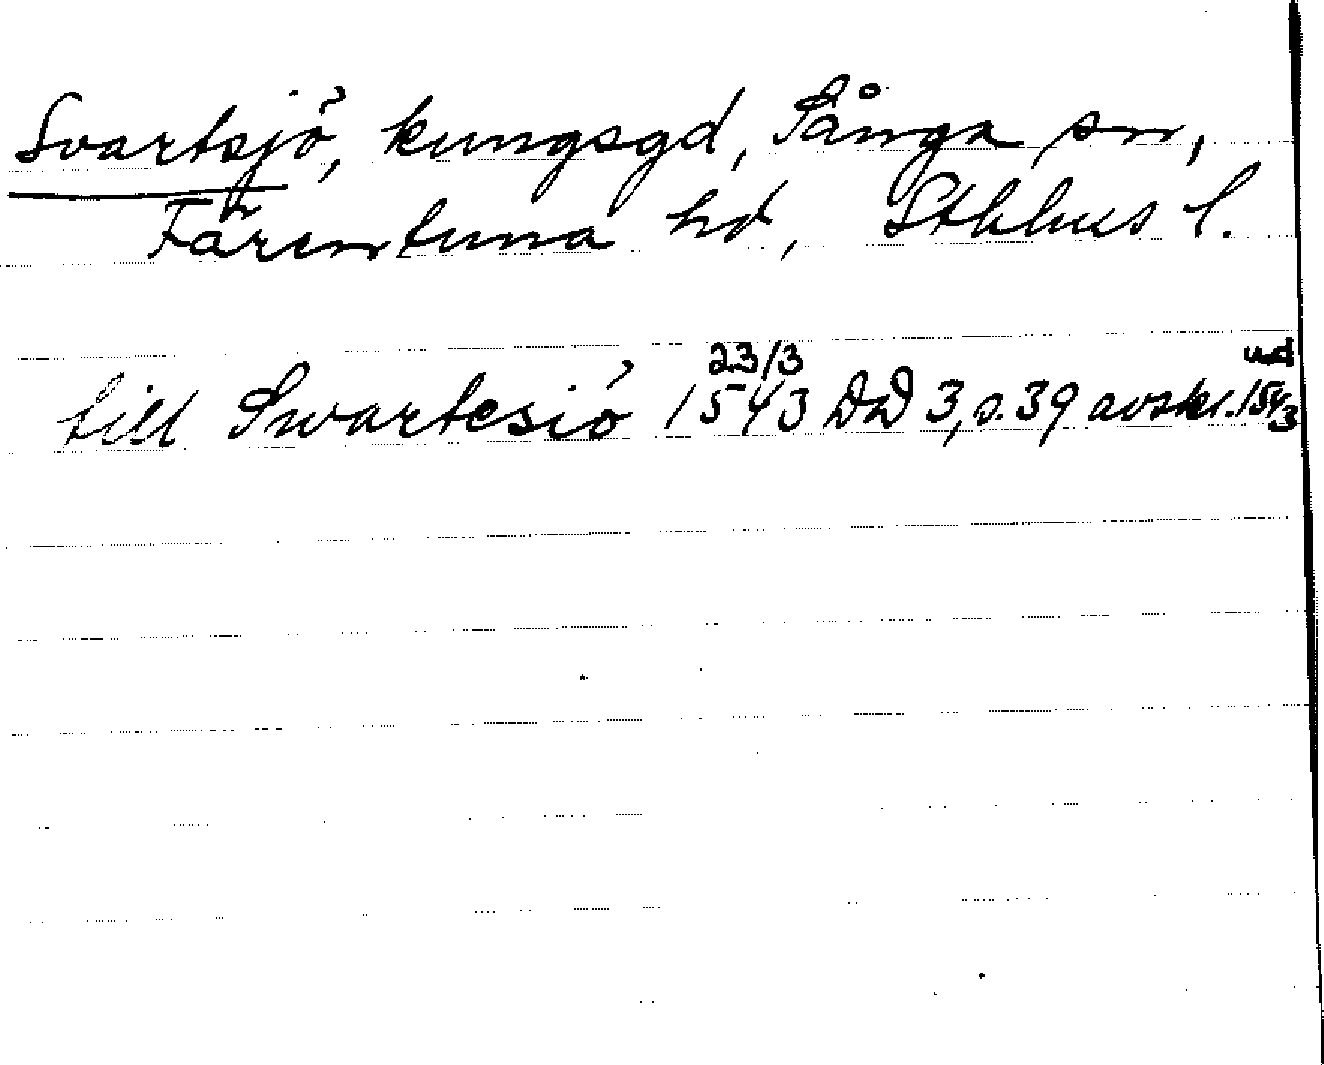 Svartsjö, kungsgd, Sånga sn,
Färentuna hd, Sthlms l.
till Swartesiö 23/3 1543 DD 3, s. 39 avskr. 1543 ud